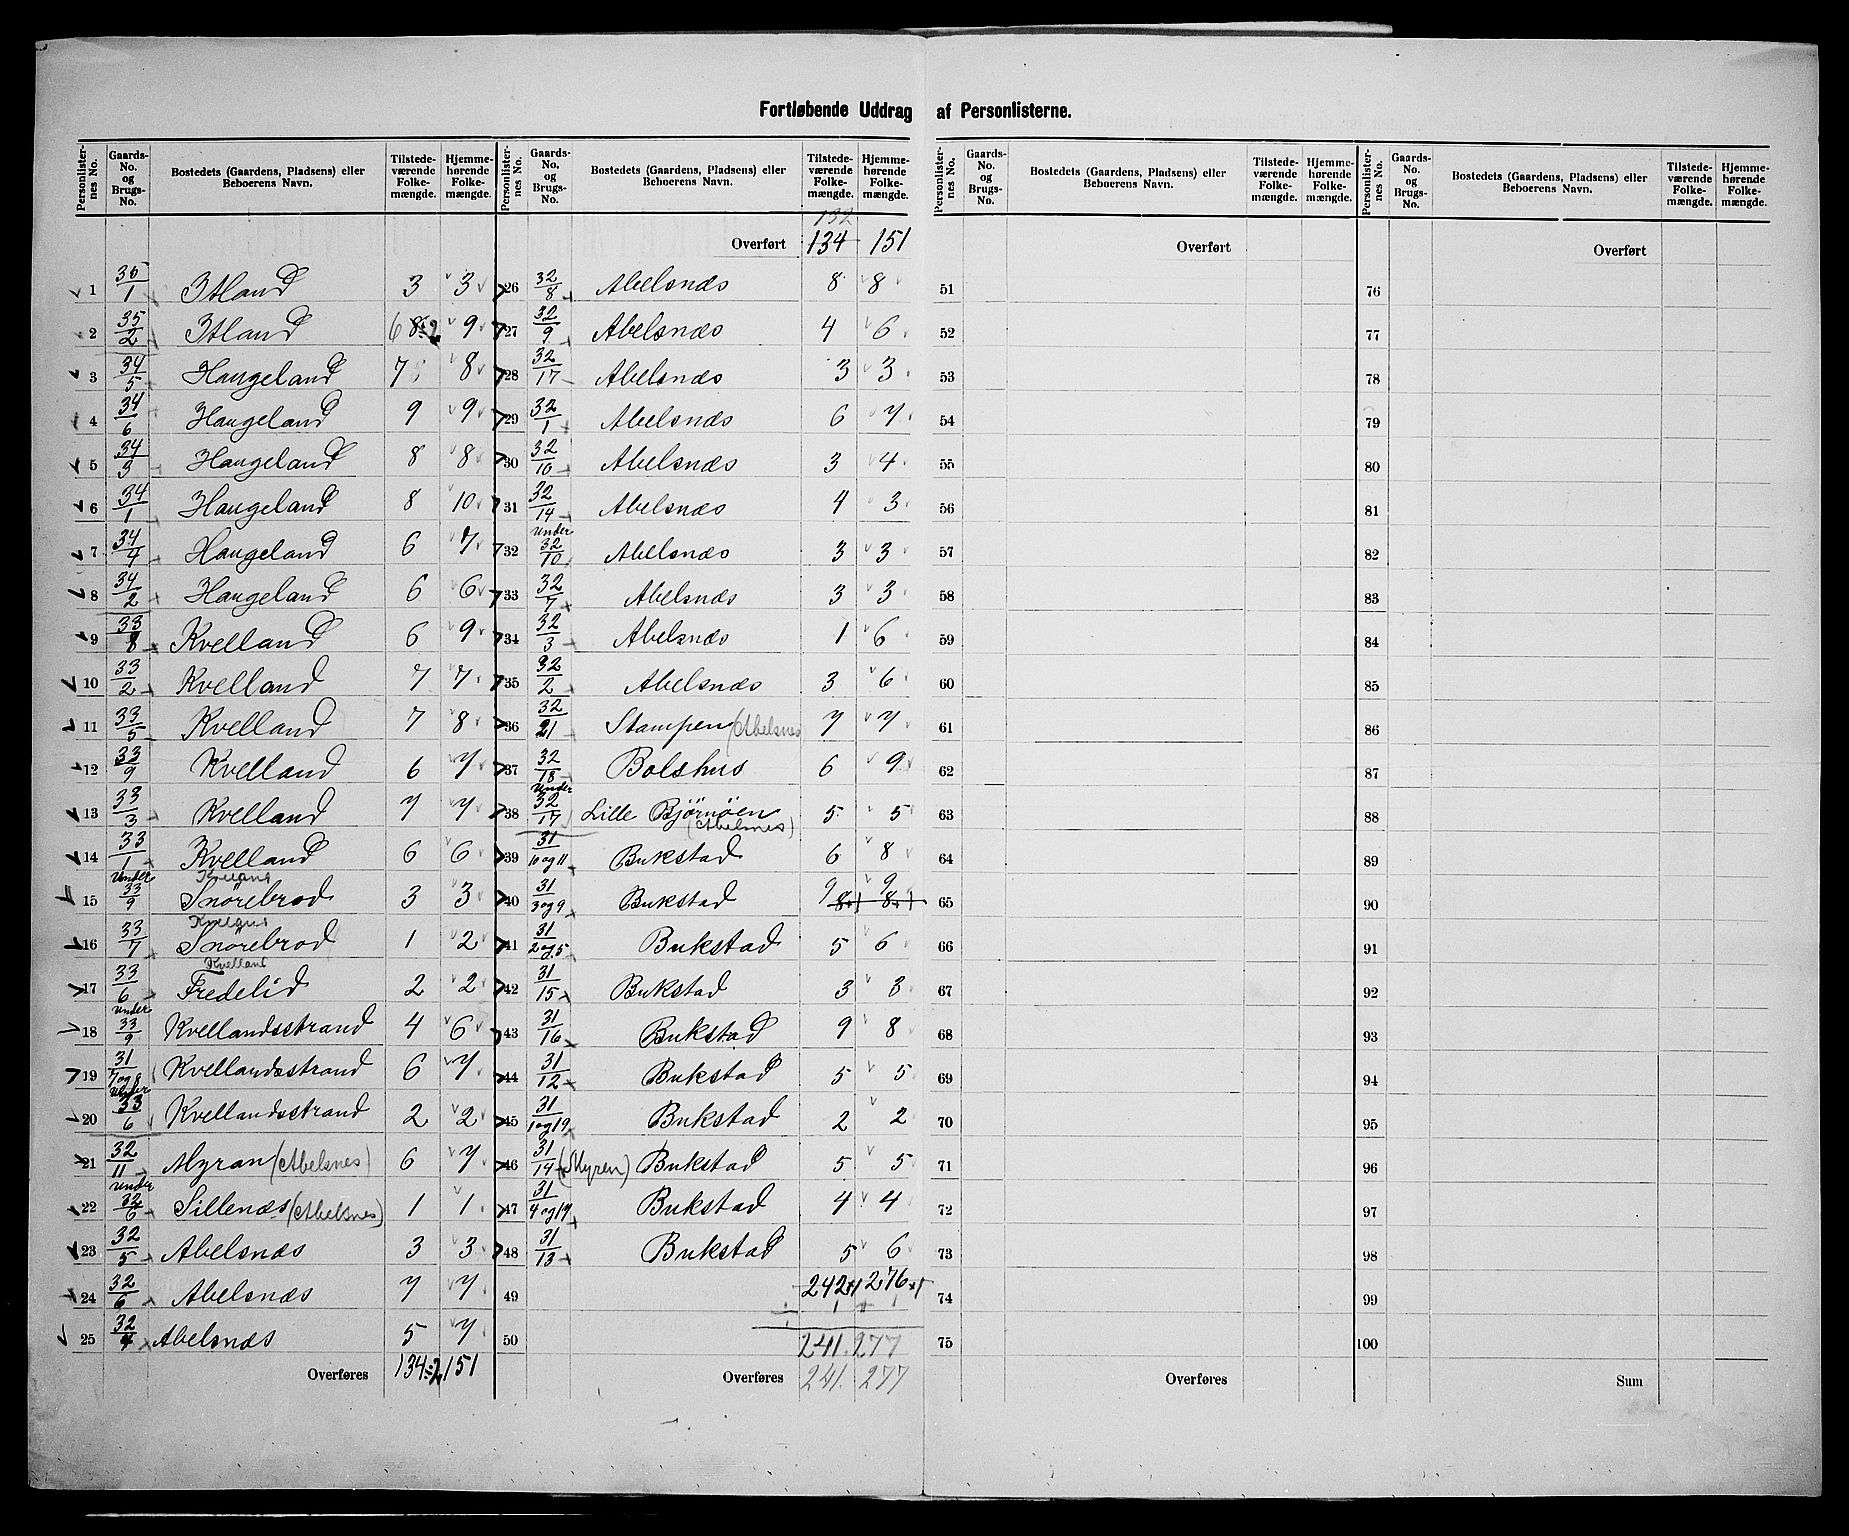 Fortløbende Uddrag af Personlisterne.
Personlisternes No. Gaards-No. og Brugs-No. Bostedets (Gaardens, Pladsens) eller Beboerens Navn. Tilstedeværende Folkemængde. Hjemmehørende Folkemængde.
Personlisternes No. Gaards-No. og Brugs-No. Bostedets (Gaardens, Pladsens) eller Beboerens Navn. Tilstedeværende Folkemængde. Hjemmehørende Folkemængde.
Personlisternes No. Gaards-No. og Brugs-No. Bostedets (Gaardens, Pladsens) eller Beboerens Navn. Tilstedeværende Folkemængde. Hjemmehørende Folkemængde.
Personlisternes No. Gaards-No. og Brugs-No. Bostedets (Gaardens, Pladsens) eller Beboerens Navn. Tilstedeværende Folkemængde. Hjemmehørende Folkemængde.
1 35/1 Itland 3 3
2 35/2 Itland 6 8÷2 9
3 34/5 Haugeland 7 8
4 34/6 Haugeland 9 9
5 34/3 Haugeland 8 8
6 34/1 Haugeland 8 10
7 34/4 Haugeland 6 7
8 34/2 Haugeland 6 6
9 33/8 Kvelland 6 9
10 33/2 Kvelland 7 7
11 33/5 Kvelland 7 8
12 33/9 Kvelland 6 7
13 33/3 Kvelland 7 7
14 33/1 Kvelland 6 6
15 Under 33/9 Snörebrod 3 3
16 33/7 Snörebrod 1 2
17 33/6 Kvelland Fredelid 2 2
18 Under 33/9 Kvellandsstrand 4 6
19 31/7 og 8 Kvellandsstrand 6 7
20 Under 33/6 Kvellandsstrand 2 2
21 32/11 Myran (Abelsnes) 6 7
22 Under 32/6 Sillenæs (Abelsnes) 1 1
23 32/5 Abelsnæs 3 3
24 32/6 Abelsnæs 7 7
25 32/4 Abelsnæs 5 7
Overføres 134÷2 151
132
Overført 134 151
26 32/8 Abelsnæs 8 8
27 32/9 Abelsnæs 4 6
28 32/17 Abelsnæs 3 3
29 32/1 Abelsnæs 6 7
30 32/10 Abelsnæs 3 4
31 32/14 Abelsnæs 4 3
32 Under 32/10 Abelsnæs 3 3
33 32/7 Abelsnæs 3 3
34 32/3 Abelsnæs 1 6
35 32/2 Abelsnæs 3 6
36 32/21 Stampen (Abelsnes 7 7
37 32/18 Bolshus 6 9
38 Under 32/17 Lille Bjørnöen (Abelsnes) 5 5
39 31/10 og 11 Bukstad 6 8
40 31/3 og 9 Bukstad 9 8+1 9 8+1
41 31/2 og 5 Bukstad 5 6
42 31/15 Bukstad 3 3
43 31/16 Bukstad 9 8
44 31/12 Bukstad 5 5
45 31/1 og 19 Bukstad 2 2
46 31/14 (Myren) Bukstad 5 5
47 31/4 og 19 Bukstad 4 4
48 31/13 Bukstad 5 6
49 242+1 276+1
50 241 277
Overføres 241. 277
Overført
51
52
53
54
55
56
57
58
59
60
61
62
63
64
65
66
67
68
69
70
71
72
73
74
75
Overføres
Overført
76
77
78
79
80
81
82
83
84
85
86
87
88
89
90
91
92
93
94
95
96
97
98
99
100
Sum